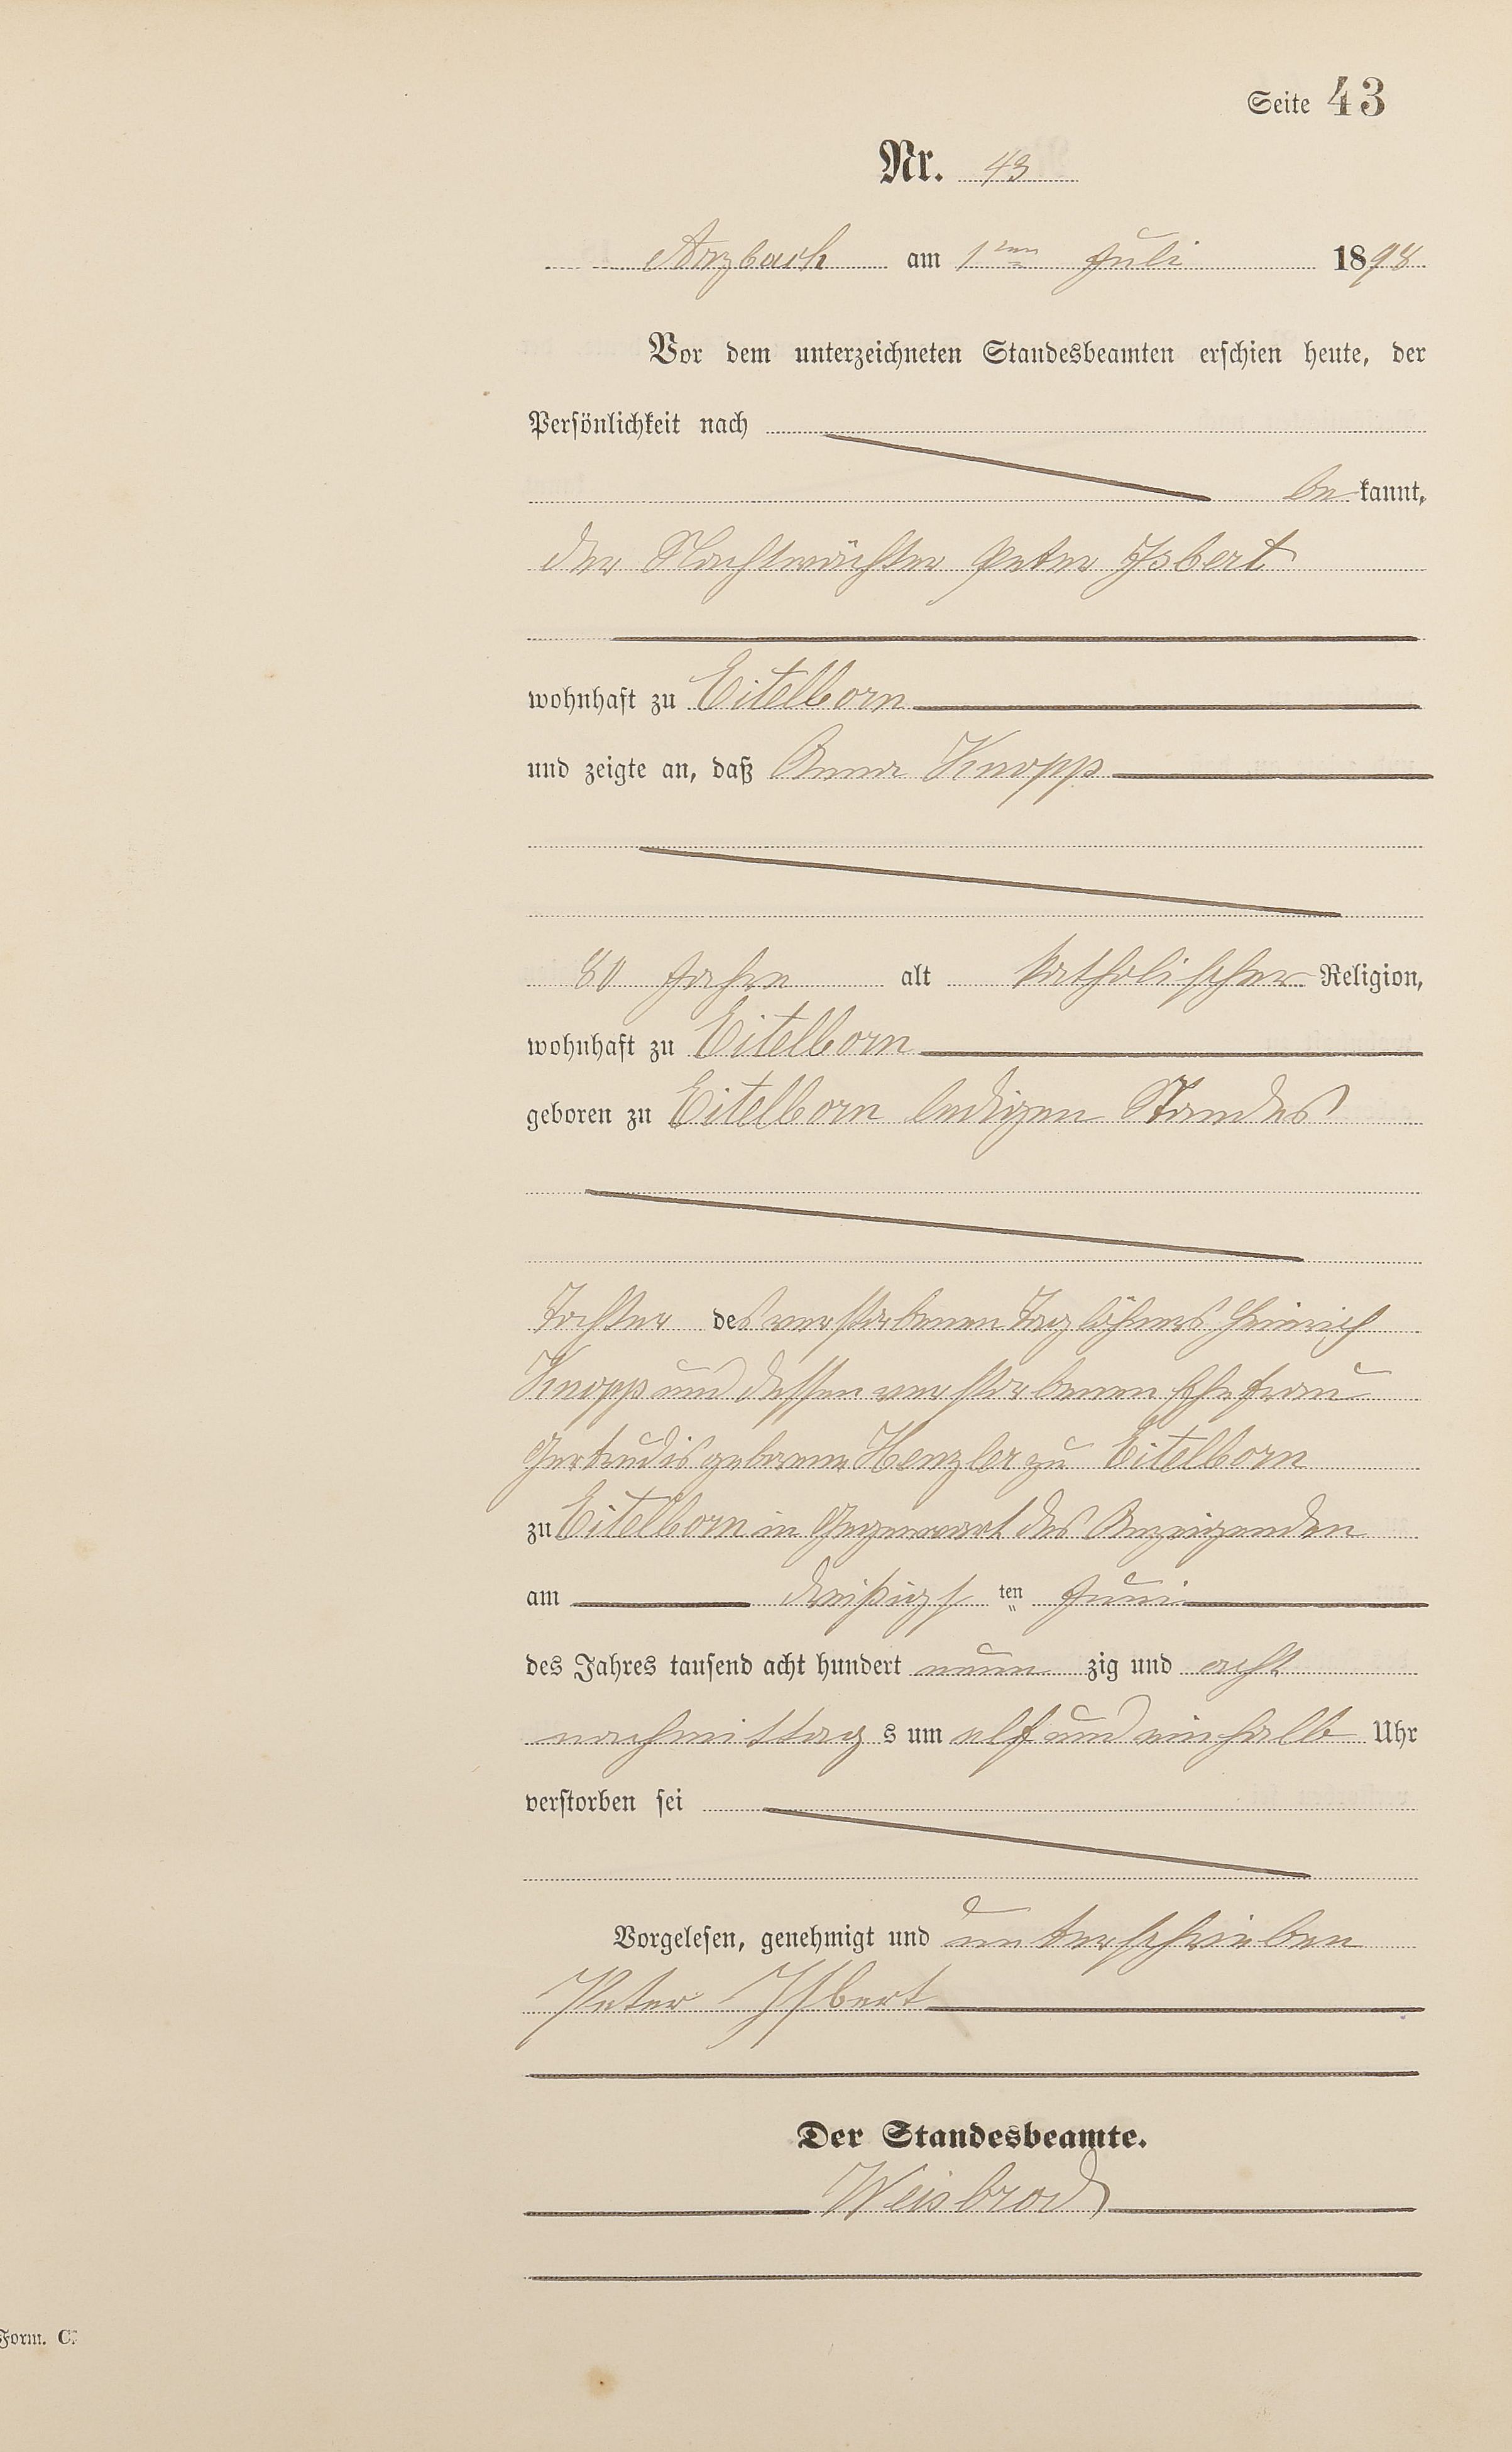 Seite 43
Nr. 43
Arzbach am 1ten Juli 1898
Vor dem unterzeichneten Standesbeamten erschien heute, der
Persönlichkeit nach
be kannt,
der Nachtwächter Peter Isbert
wohnhaft zu Eitelborn
und zeigte an, daß Anna Knopp
80 Jahre alt katholischer Religion,
wohnhaft zu Eitelborn
geboren zu Eitelborn ledigen Standes
Tochter des verstorbenen Taglöhners Heinrich
Knopp und dessen verstorbenen Ehefrau
Gertrudis geborene Henzler zu Eitelborn
zu Eitelborn in Gegenwart des Anzeigenden
am dreißigsten Juni
des Jahres tausend acht hundert neun zig und acht
nachmittag s um elf und einhalb Uhr
verstorben sei
Vorgelesen, genehmigt und unterschrieben
Peter Isbert
Der Standesbeamte.
Weisbrod
Form. C.